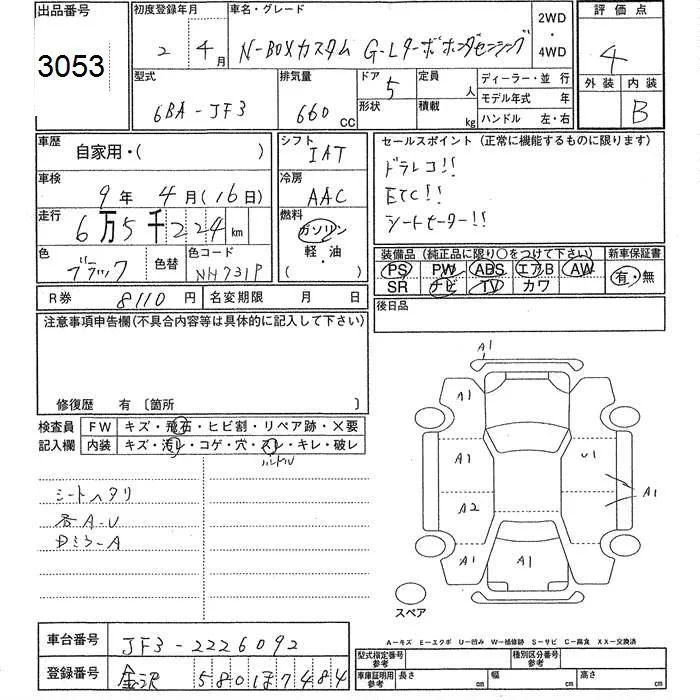 出品番号 初度登録年月 車名・グレード 2WD・4WD 評価点
3053 2年 4月 N-BOXカスタム G-Lターボホンダセンシング 4
型式 排気量 ドア 定員 人 ディーラー・並行 外装 内装
6BA-JF3 660cc 5 形状 積載 kg モデル年式 年 B
ハンドル 左・右
車歴 自家用・( ) シフト IAT セールスポイント(正常に機能するものに限ります)
車検 9年 4月(16日) 冷房 AAC ドラレコ!!
ETC!!
走行 6万5千224km 燃料 ガソリン 軽・油 ( ・ ) シートヒーター!!
色 ブラック 色替 色コード NH731P 装備品(純正品に限り○をつけて下さい) 新車保証書
PS PW ABS エアB AW 有・無
SR ナビ TV カワ
R券 8110円 名変期限 月 日 後日品
注意事項申告欄(不具合内容等は具体的に記入して下さい)
修復歴 有〔箇所 〕
検査員 FW キズ・飛石・ヒビ割・リペア跡・×要
記入欄 内装 キズ・汚レ・コゲ・穴・スレ・キレ・破レ
ハンドル
シートヘタリ
各A-U
Dミラ-A
A1
A1
A1 U1
A1
A2
A1 A1
スペア
A-キズ E-エクボ U-凹み W-補修跡 S-サビ C-腐食 XX-交換済
車台番号 JF3-2226092 型式指定番号 参考 種別区分番号 参考
登録番号 金沢 580 ほ 7484 車庫証明用 参考 長さ cm 幅 cm 高さ cm